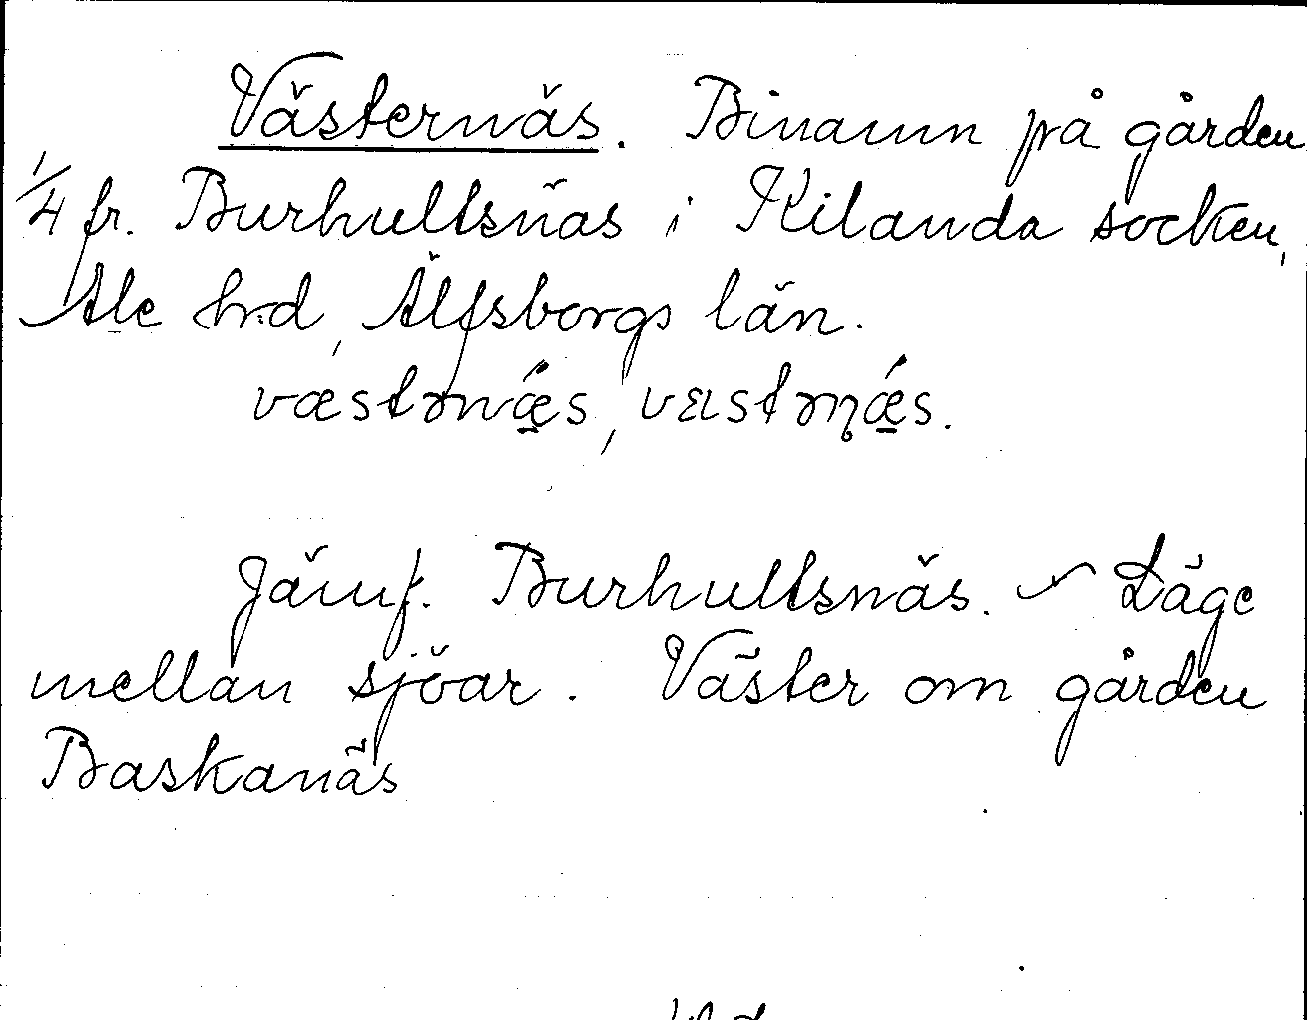 Västernäs. Binamn på gården
1/4 fr. Burhultsnäs i Kilanda socken,
Ale hrd, Älfsborgs län.
væstənǽs,
Jämf. Burhultsnäs. Läge
mellan sjöar. Väster om gården
Baskanäs